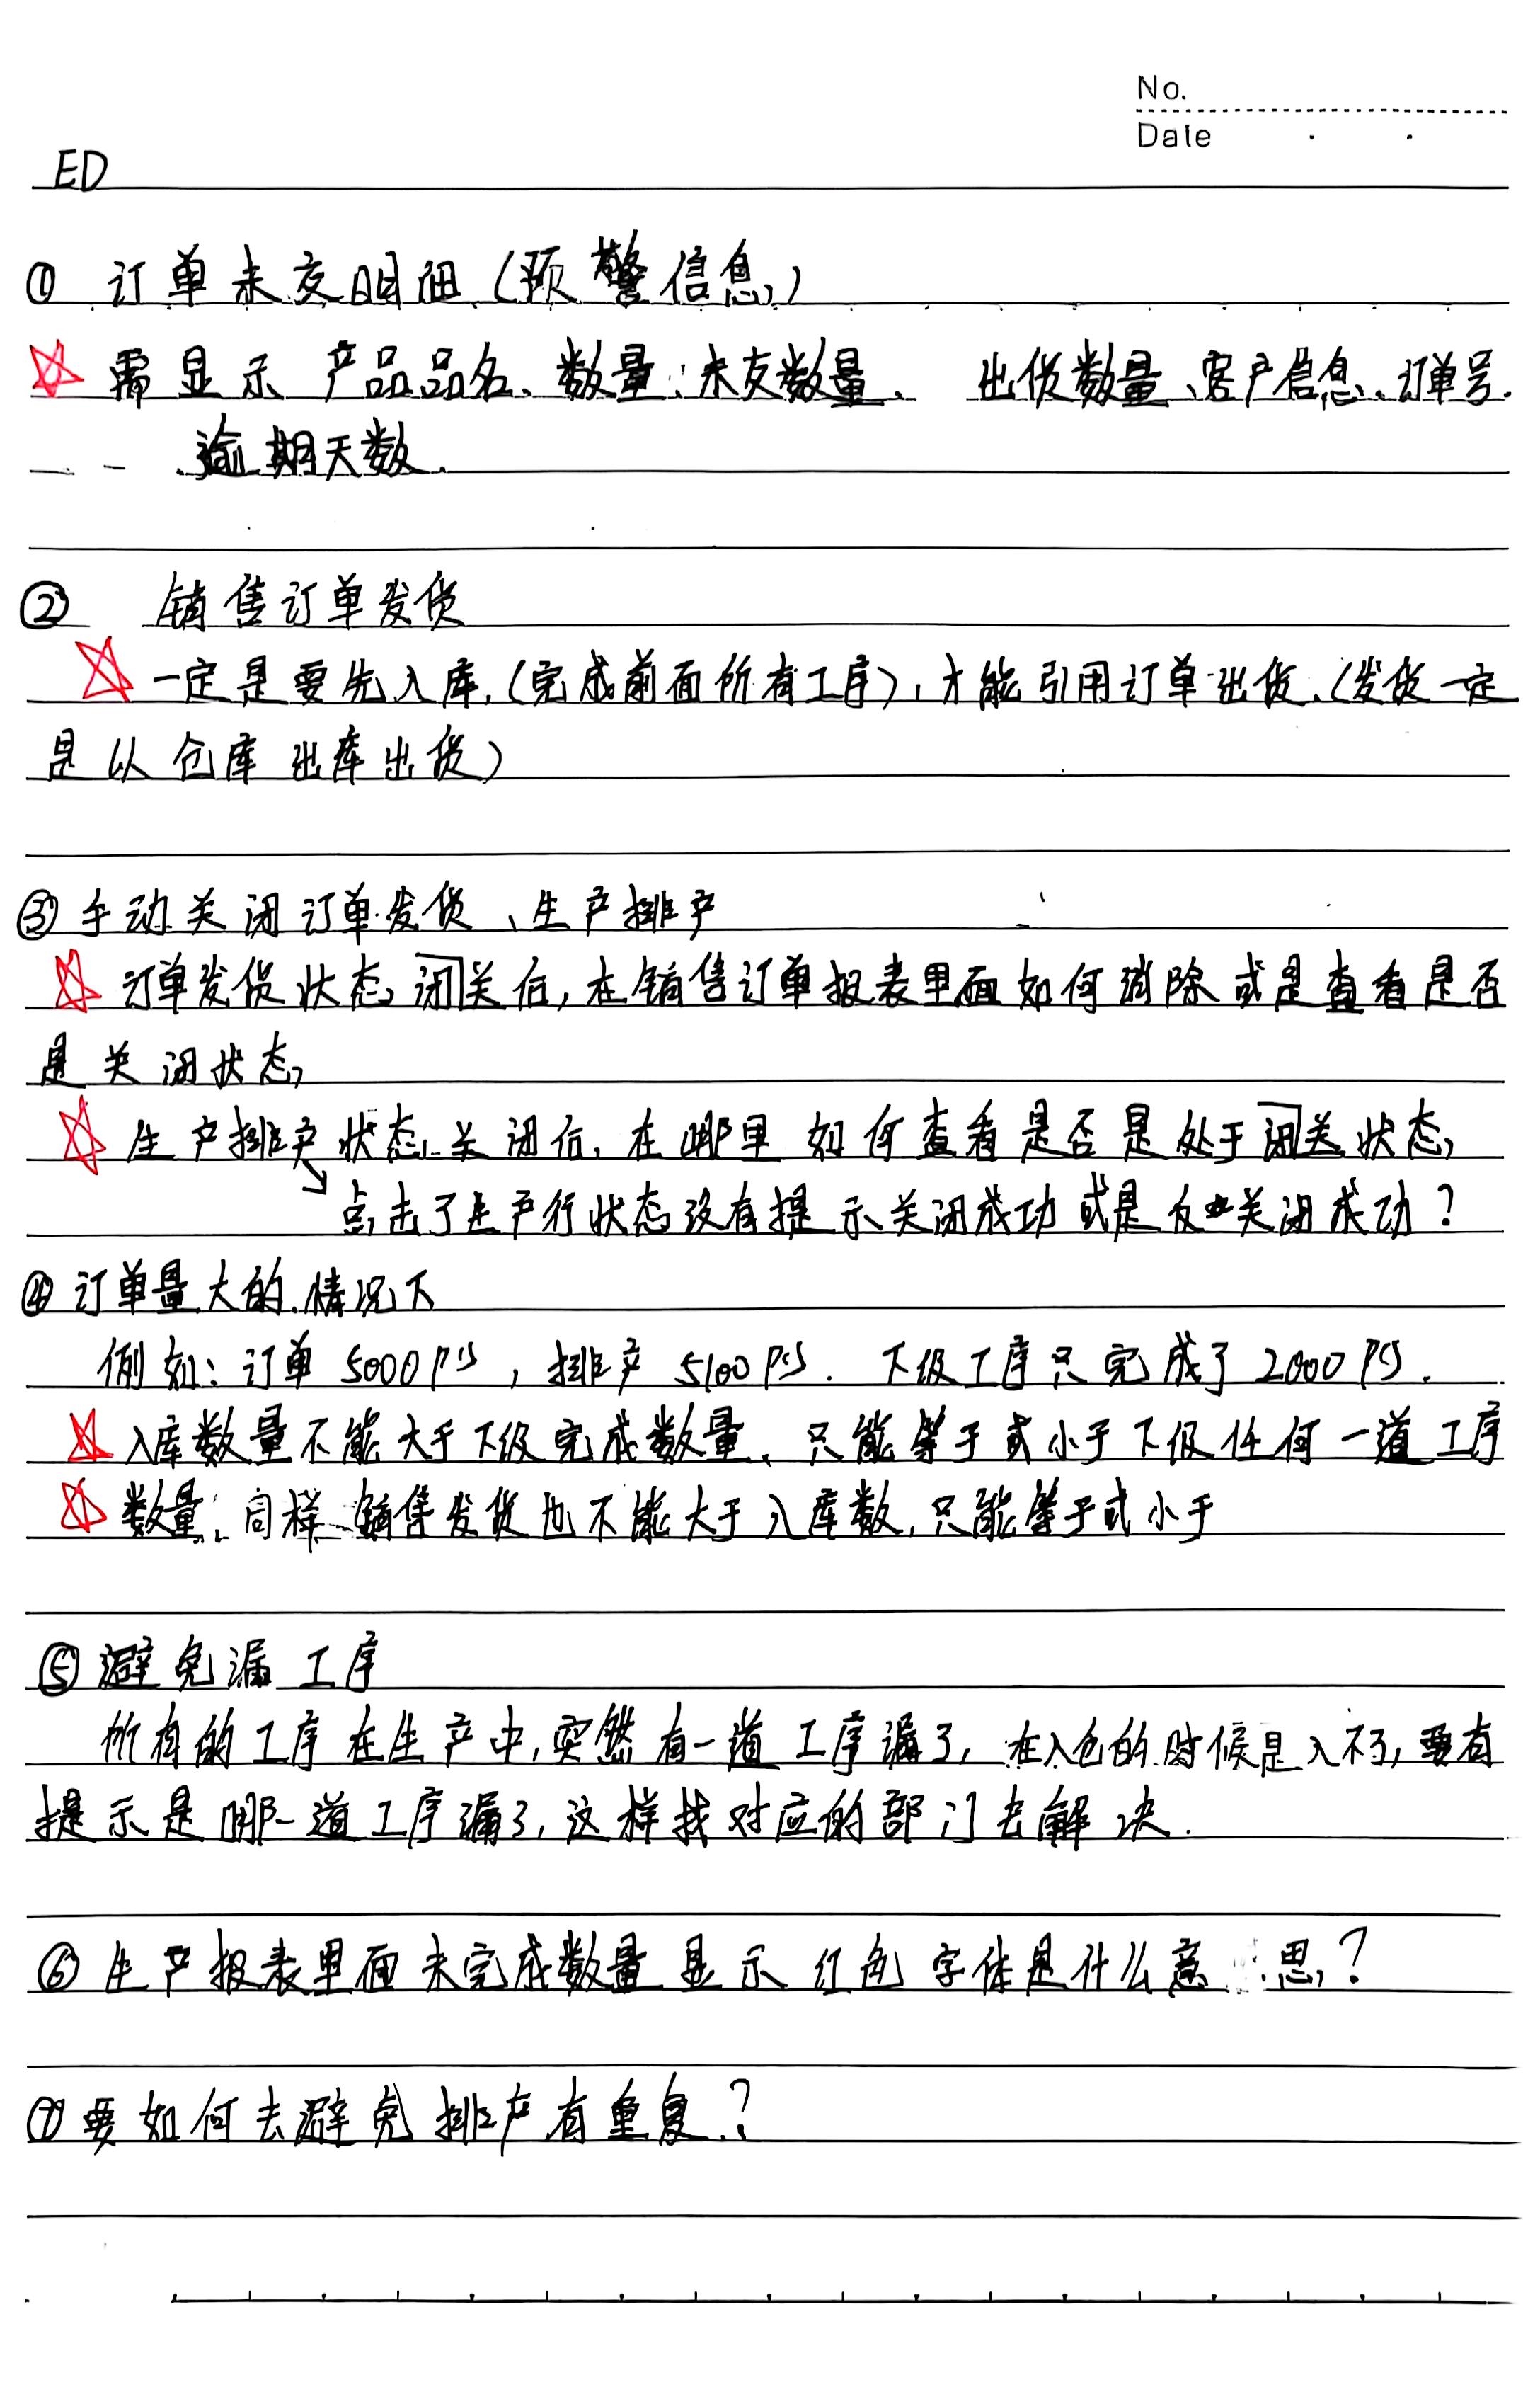 No.
Date
ED
① 订单未交明细(预警信息)
需显示 产品品名、数量、未交数量、 出货数量、客户信息、订单号.
逾期天数.
② 销售订单发货
一定是要先入库,(完成前面所有工序),才能引用订单出货.(发货一定
是从仓库出库出货)
③ 手动关闭订单发货、生产排产
订单发货状态闭关后,在销售订单报表里面如何消除或是查看是否
是关闭状态,
生产排产状态关闭后,在哪里 如何查看是否是处于闭关状态,
点击了生产行状态没有提示关闭成功或是反关闭成功?
④ 订单量大的情况下
例如:订单5000PCS,排产5100PCS. 下级工序只完成了2000PCS.
入库数量不能大于下级完成数量、只能等于或小于下级任何一道工序
数量,同样 销售发货也不能大于入库数,只能等于或小于
⑤ 避免漏工序
所有的工序在生产中,突然有一道工序漏了,在入仓的时候是入不了,要有
提示是哪一道工序漏了,这样找对应的部门去解决.
⑥ 生产报表里面未完成数量显示红色字体是什么意思?
⑦ 要如何去避免排产有重复?